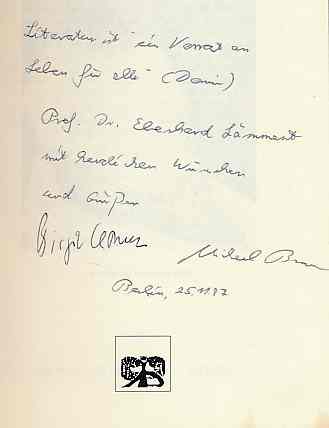 Literatur ist "ein Vorrat an
Leben für alle" (Domin)
Prof. Dr. Eberhard Lämmert
mit herzlichen Wünschen
und Grüßen
Birgit Lermen Michael Braun
Berlin, 25.11.97